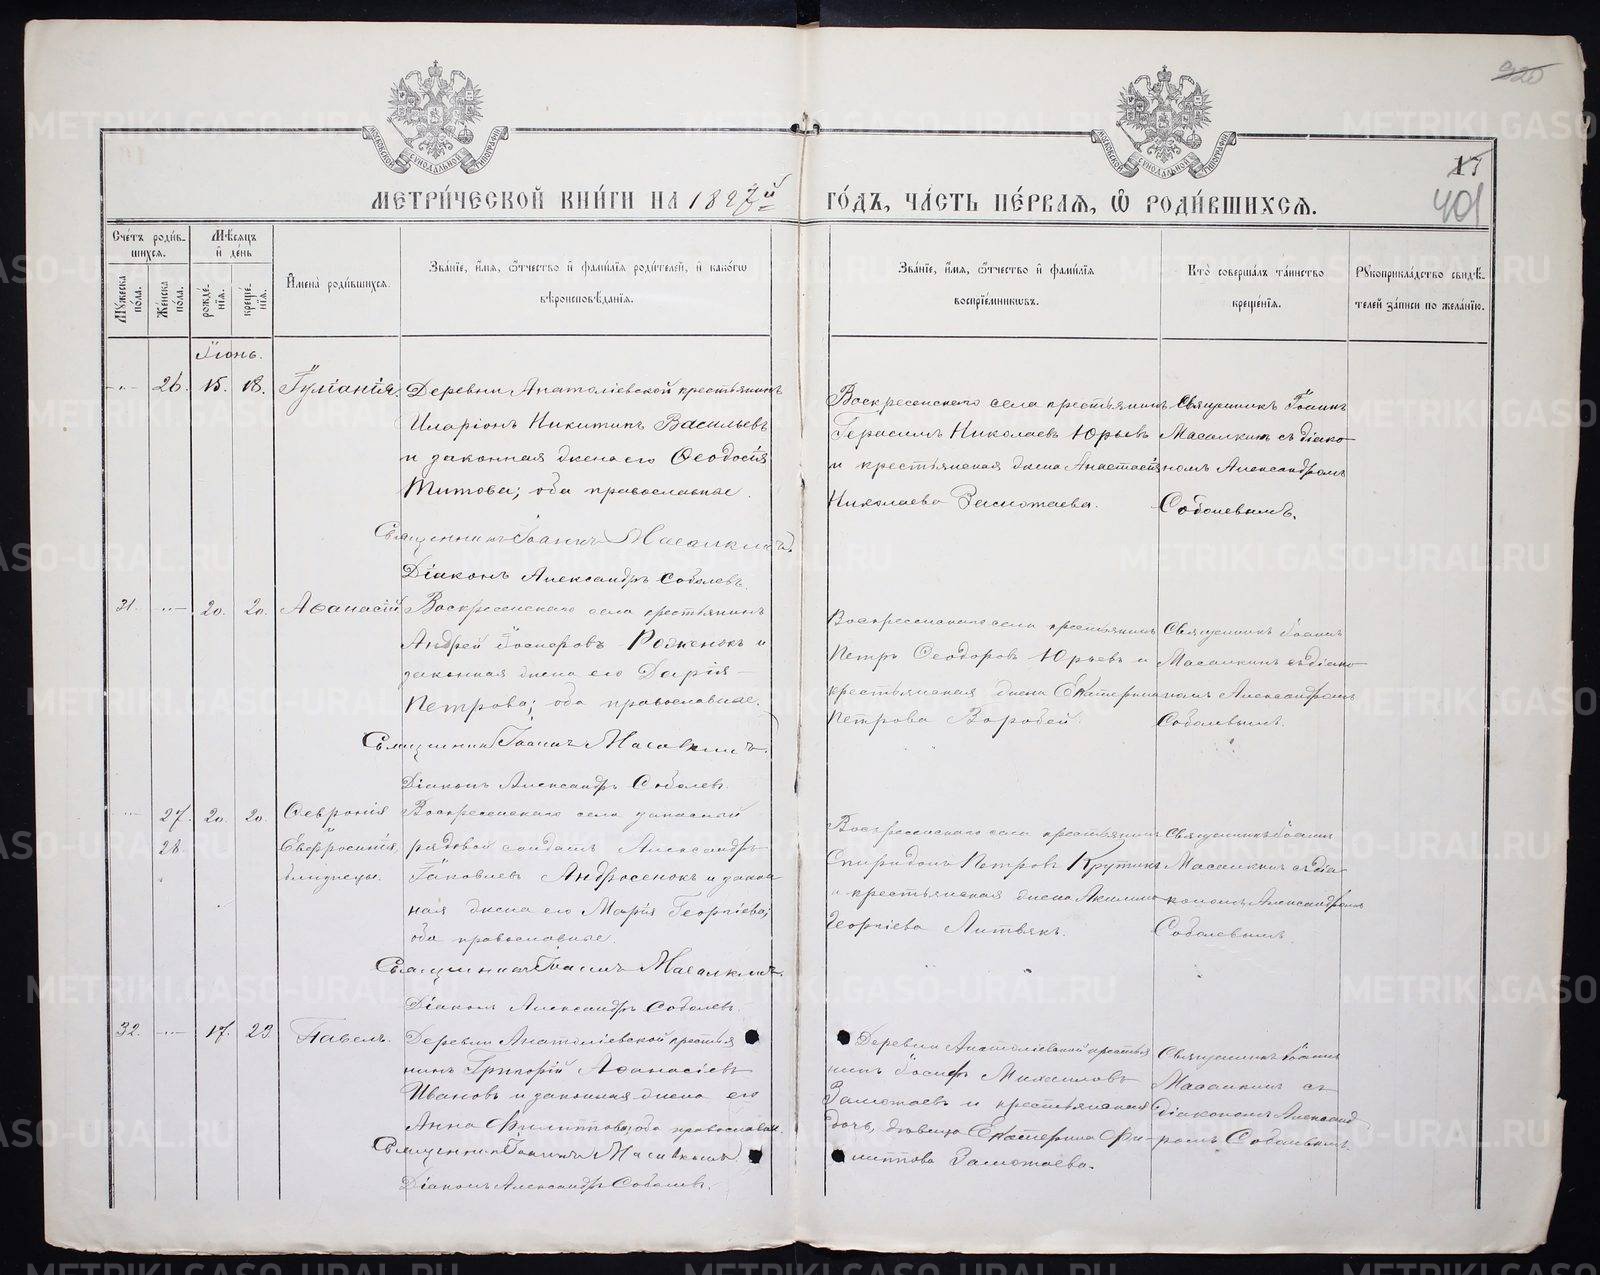 920
17
401
МОСКОВСКОЙ СѴНОДАЛЬНОЙ ТИПОГРАФІИ
МОСКОВСКОЙ СѴНОДАЛЬНОЙ ТИПОГРАФІИ
МЕТРИ́ЧЕСКОЙ КНИ́ГИ НА 1897й
ГО́ДЪ, ЧА́СТЬ ПЕ́РВАѦ, Ѡ҆ РОДИ́ВШИХСѦ.
Сче́тъ роди́в-
шихсѧ.
Мѣ́сѧцъ
и҆ де́нь
Мꙋ́жеска по́ла.
Же́нска по́ла.
рожде́-нїѧ.
креще́-нїѧ.
И҆мена̀ роди́вшихсѧ.
Зва́нїе, и҆́мѧ, ѻ҆́тчество и҆ фами́лїѧ роди́телей, и҆ како́гѡ
вѣроисповѣ́данїѧ.
Зва́нїе, и҆́мѧ, ѻ҆́тчество и҆ фами́лїѧ
воспрїе́мникѡвъ.
Кто̀ соверша́лъ та́инство
креще́нїѧ.
Рꙋкоприкла́дство свидѣ́-
телей за́писи по жела́нїю.
Іюнь.
-"- 26. 15. 18. Іуліанія. Деревни Анатоліевской крестьянинъ
Иларіонъ Никитинъ Васильевъ
и законная жена его Ѳеодосія
Титова; оба православные.
Священникъ Іоаннъ Масалкинъ.
Діаконъ Александръ Соболевъ.
Воскресенскаго села крестьянинъ
Герасимъ Николаевъ Юрьевъ
и крестьянская жена Анастасія
Николаева Залютаева.
Священникъ Іоаннъ
Масалкинъ съ діако-
номъ Александромъ
Соболевымъ.
31. -"- 20. 20. Аѳанасій Воскресенскаго села крестьянинъ
Андрей Іосифовъ Роженокъ и
законная жена его Дарія
Петрова; оба православные.
Священникъ Іоаннъ Масалкинъ.
Діаконъ Александръ Соболевъ.
Воскресенскаго села крестьянинъ
Петръ Ѳеодоровъ Юрьевъ и
крестьянская жена Екатерина
Петрова Воробей.
Священникъ Іоаннъ
Масалкинъ съ діако-
номъ Александромъ
Соболевымъ.
-"- 27. 20. 20. Ѳевронія Воскресенскаго села запасный
28. Евфросинія, рядовой солдатъ Александръ
близнецы. Іаковлевъ Андросенокъ и закон-
ная жена его Марія Георгіева;
оба православные.
Священникъ Іоаннъ Масалкинъ.
Діаконъ Александръ Соболевъ.
Воскресенскаго села крестьянинъ
Спиридонъ Петровъ Крутикъ
и крестьянская жена Акилина
Георгіева Литвякъ.
Священникъ Іоаннъ
Масалкинъ съ діа-
кономъ Александромъ
Соболевымъ.
32. -"- 17. 23. Павелъ. Деревни Анатоліевской крестья-
нинъ Григорій Аѳанасіевъ
Ивановъ и законная жена его
Анна Филиппова; оба православн.
Священникъ Іоаннъ Масалкинъ.
Діаконъ Александръ Соболевъ.
Деревни Анатоліевской крестья-
нинъ Іосифъ Михаиловъ
Залютаевъ и крестьянская
дочь, девица Екатерина Фи-
липпова Залютаева.
Священникъ Іоаннъ
Масалкинъ съ
діакономъ Александ-
ромъ Соболевымъ.